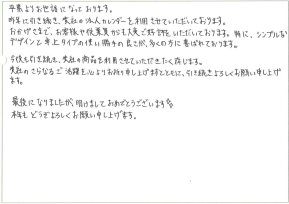 平素よりお世話になっております。
昨年に引き続き、貴社の法人カレンダーを利用させていただいております。
おかげさまで、お客様や従業員からも大変ご好評をいただいております。特に、シンプルな
デザインと卓上タイプの使い勝手の良さが、多くの方に喜ばれております。
今後も引き続き、貴社の商品を利用させていただきたく存じます。
貴社のさらなるご活躍を心よりお祈り申し上げますとともに、引き続きよろしくお願い申し上げ
ます。
最後になりましたが、明けましておめでとうございます
本年もどうぞよろしくお願い申し上げます。